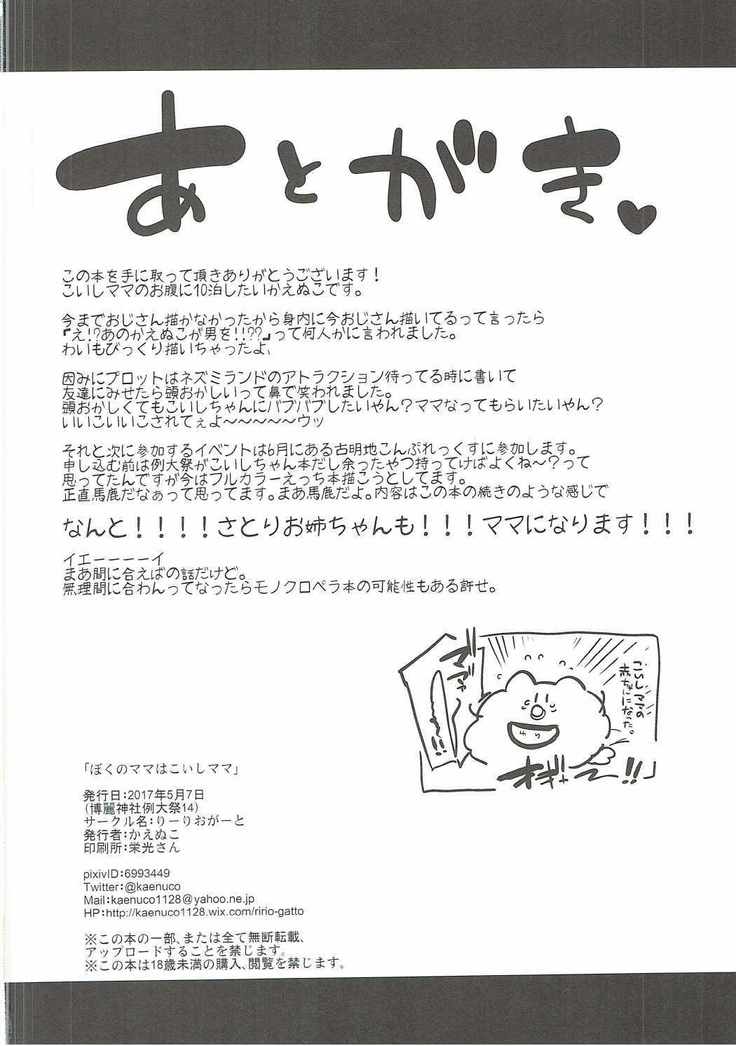 あとがき♥
この本を手に取って頂きありがとうございます！
こいしママのお腹に10泊したいかえぬこです。
今までおじさん描かなかったから身内に今おじさん描いてるって言ったら
『え!?あのかえぬこが男を!!??』って何人かに言われました。
わいもびっくり描いちゃったよ、
因みにプロットはネズミランドのアトラクション待ってる時に書いて
友達にみせたら頭おかしいって鼻で笑われました。
頭おかしくてもこいしちゃんにバブバブしたいやん？ママなってもらいたいやん？
いいこいいこされてぇよ〜〜〜〜〜ウッ
それと次に参加するイベントは6月にある古明地こんぷれっくすに参加します。
申し込む前は例大祭がこいしちゃん本だし余ったやつ持ってけばよくね〜？って
思ってたんですが今はフルカラーえっち本描こうとしてます。
正直馬鹿だなぁって思ってます。まあ馬鹿だよ。内容はこの本の続きのような感じで
なんと！！！！さとりお姉ちゃんも！！！ママになります！！！
イエーーーーイ
まあ間に合えばの話だけど。
無理間に合わんってなったらモノクロペラ本の可能性もある許せ。
こいしママの
赤ちゃんになった。
オギャー!!
「ぼくのママはこいしママ」
発行日:2017年5月7日
(博麗神社例大祭14)
サークル名:りーりおがーと
発行者:かえぬこ
印刷所:栄光さん
pixivID:6993449
Twitter:@kaenuco
Mail:kaenuco1128@yahoo.ne.jp
HP:http://kaenuco1128.wix.com/ririo-gatto
※この本の一部、または全て無断転載、
アップロードすることを禁じます。
※この本は18歳未満の購入、閲覧を禁じます。